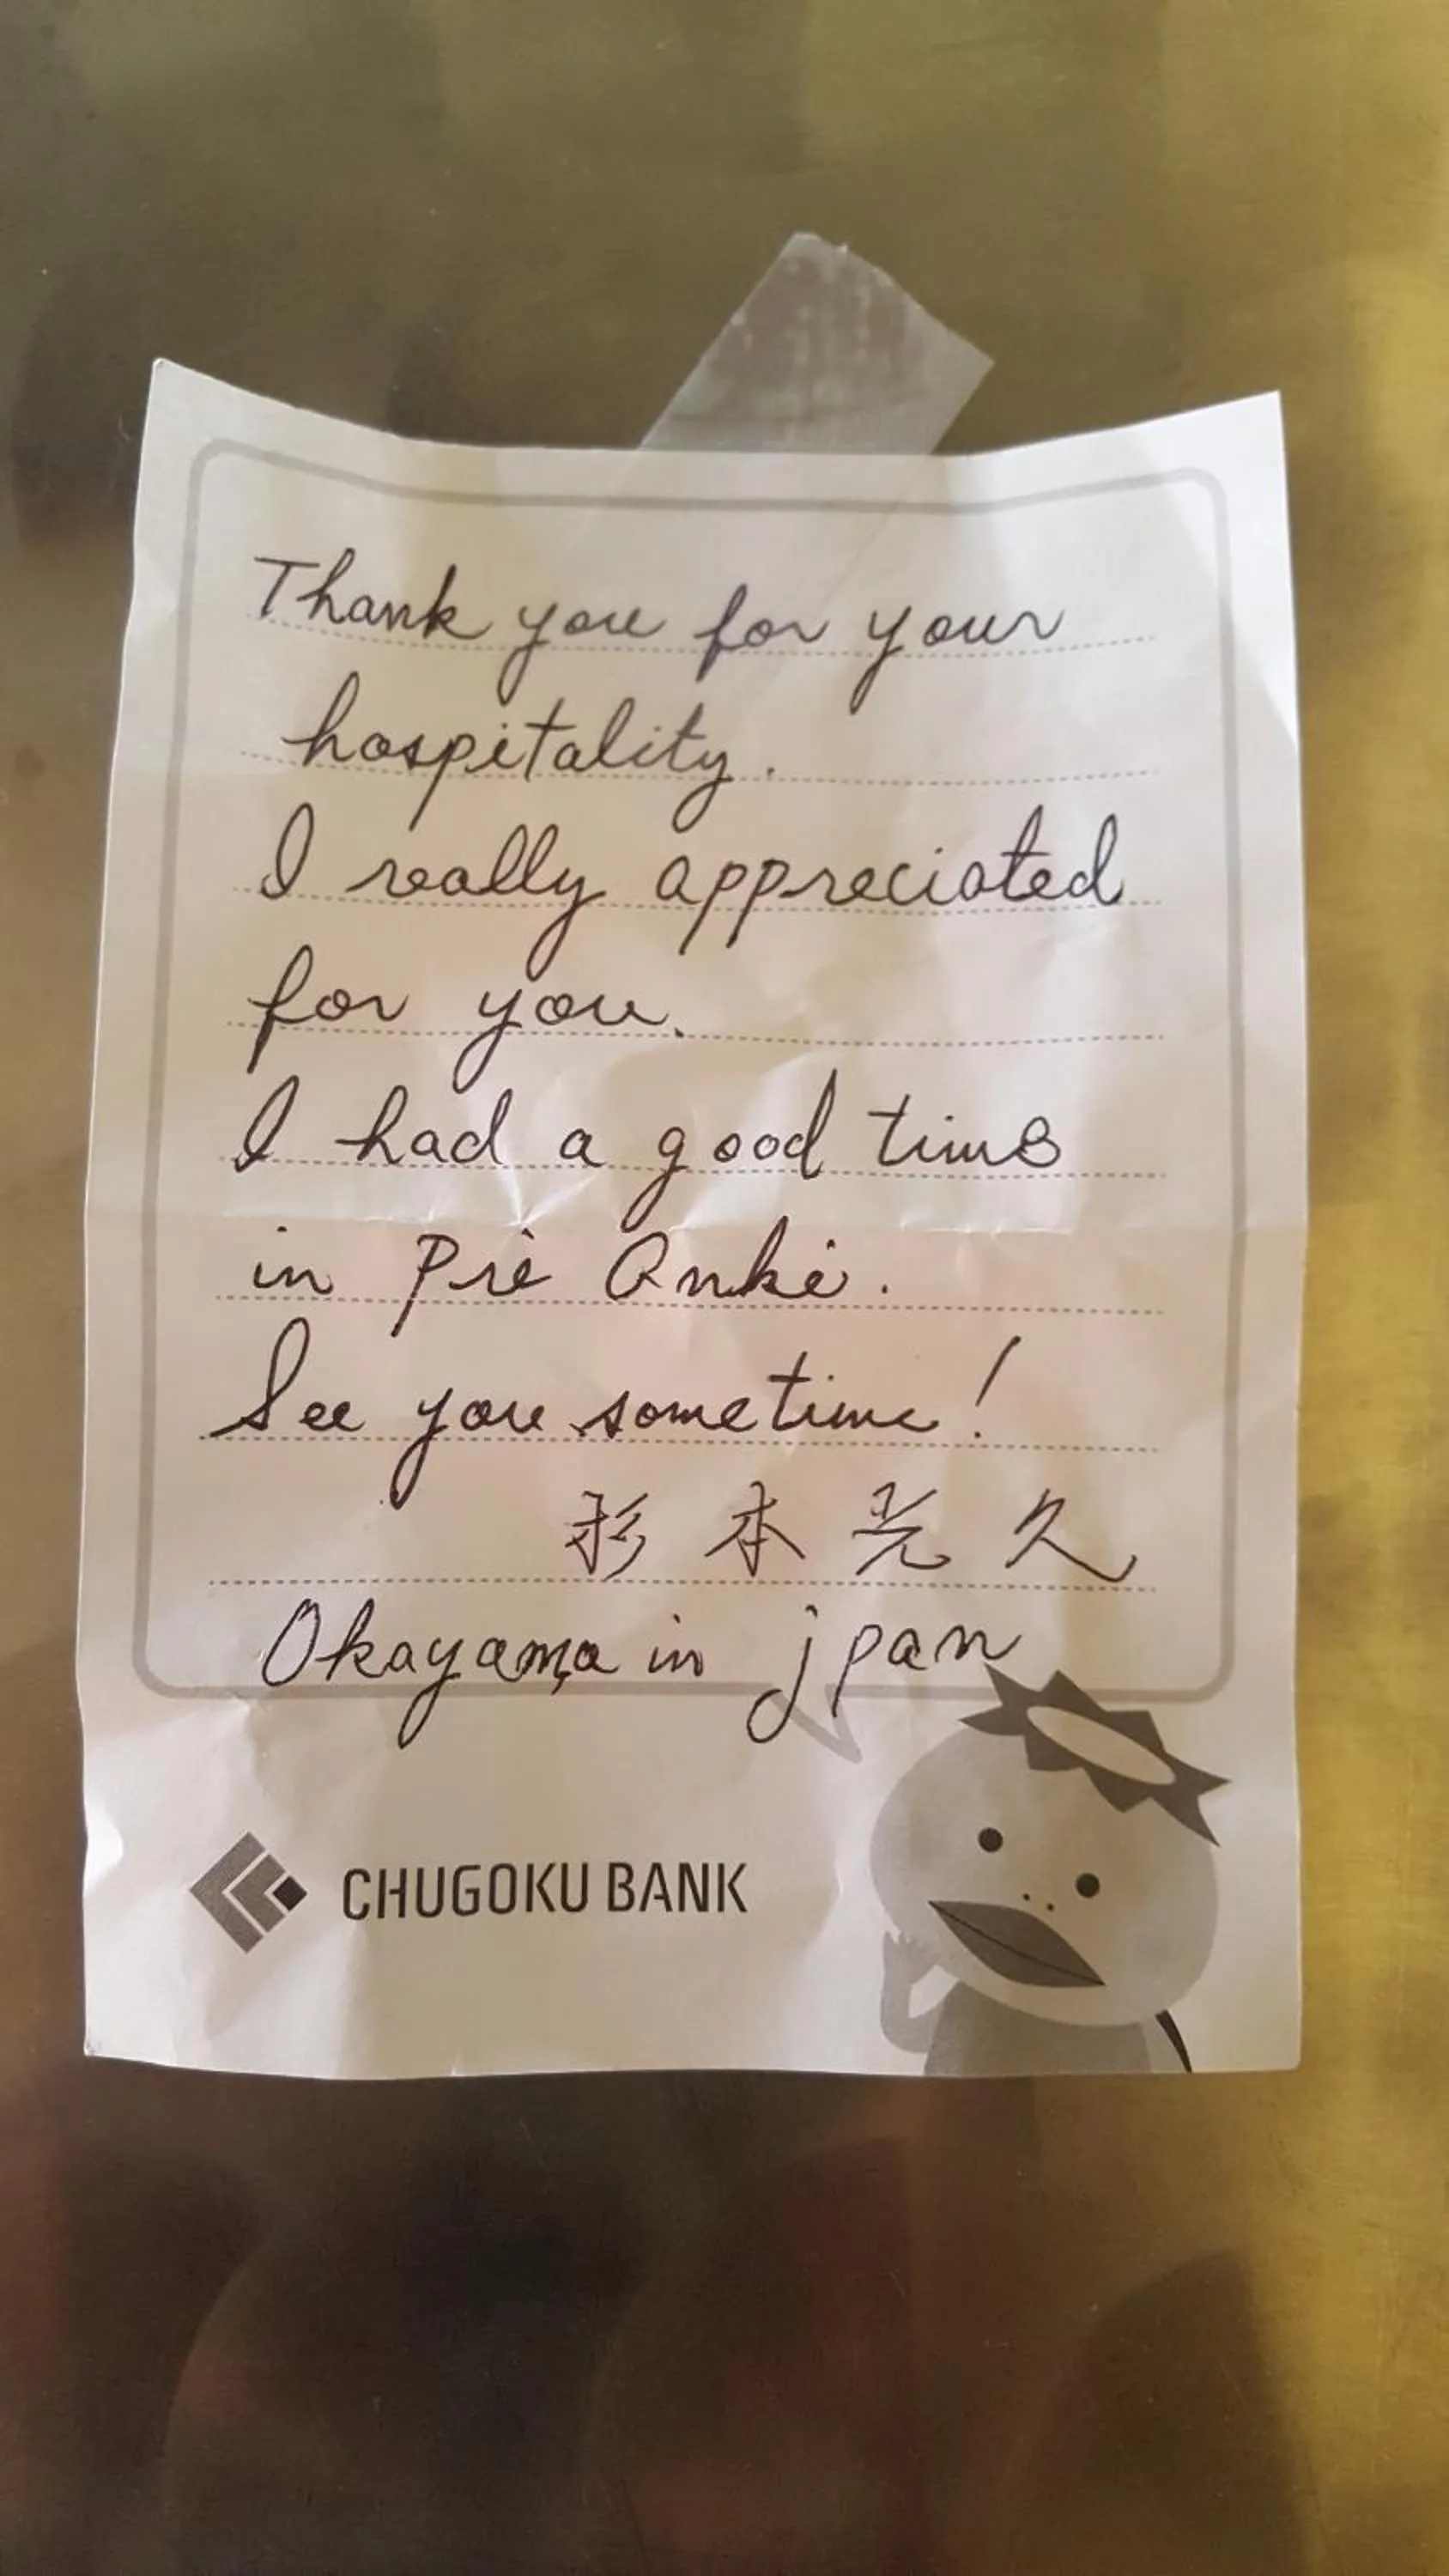 Thank you for your
hospitality.
I really appreciated
for you.
I had a good time
in Prè Ankè.
See you sometime!
杉本光久
Okayama in jpan
CHUGOKU BANK